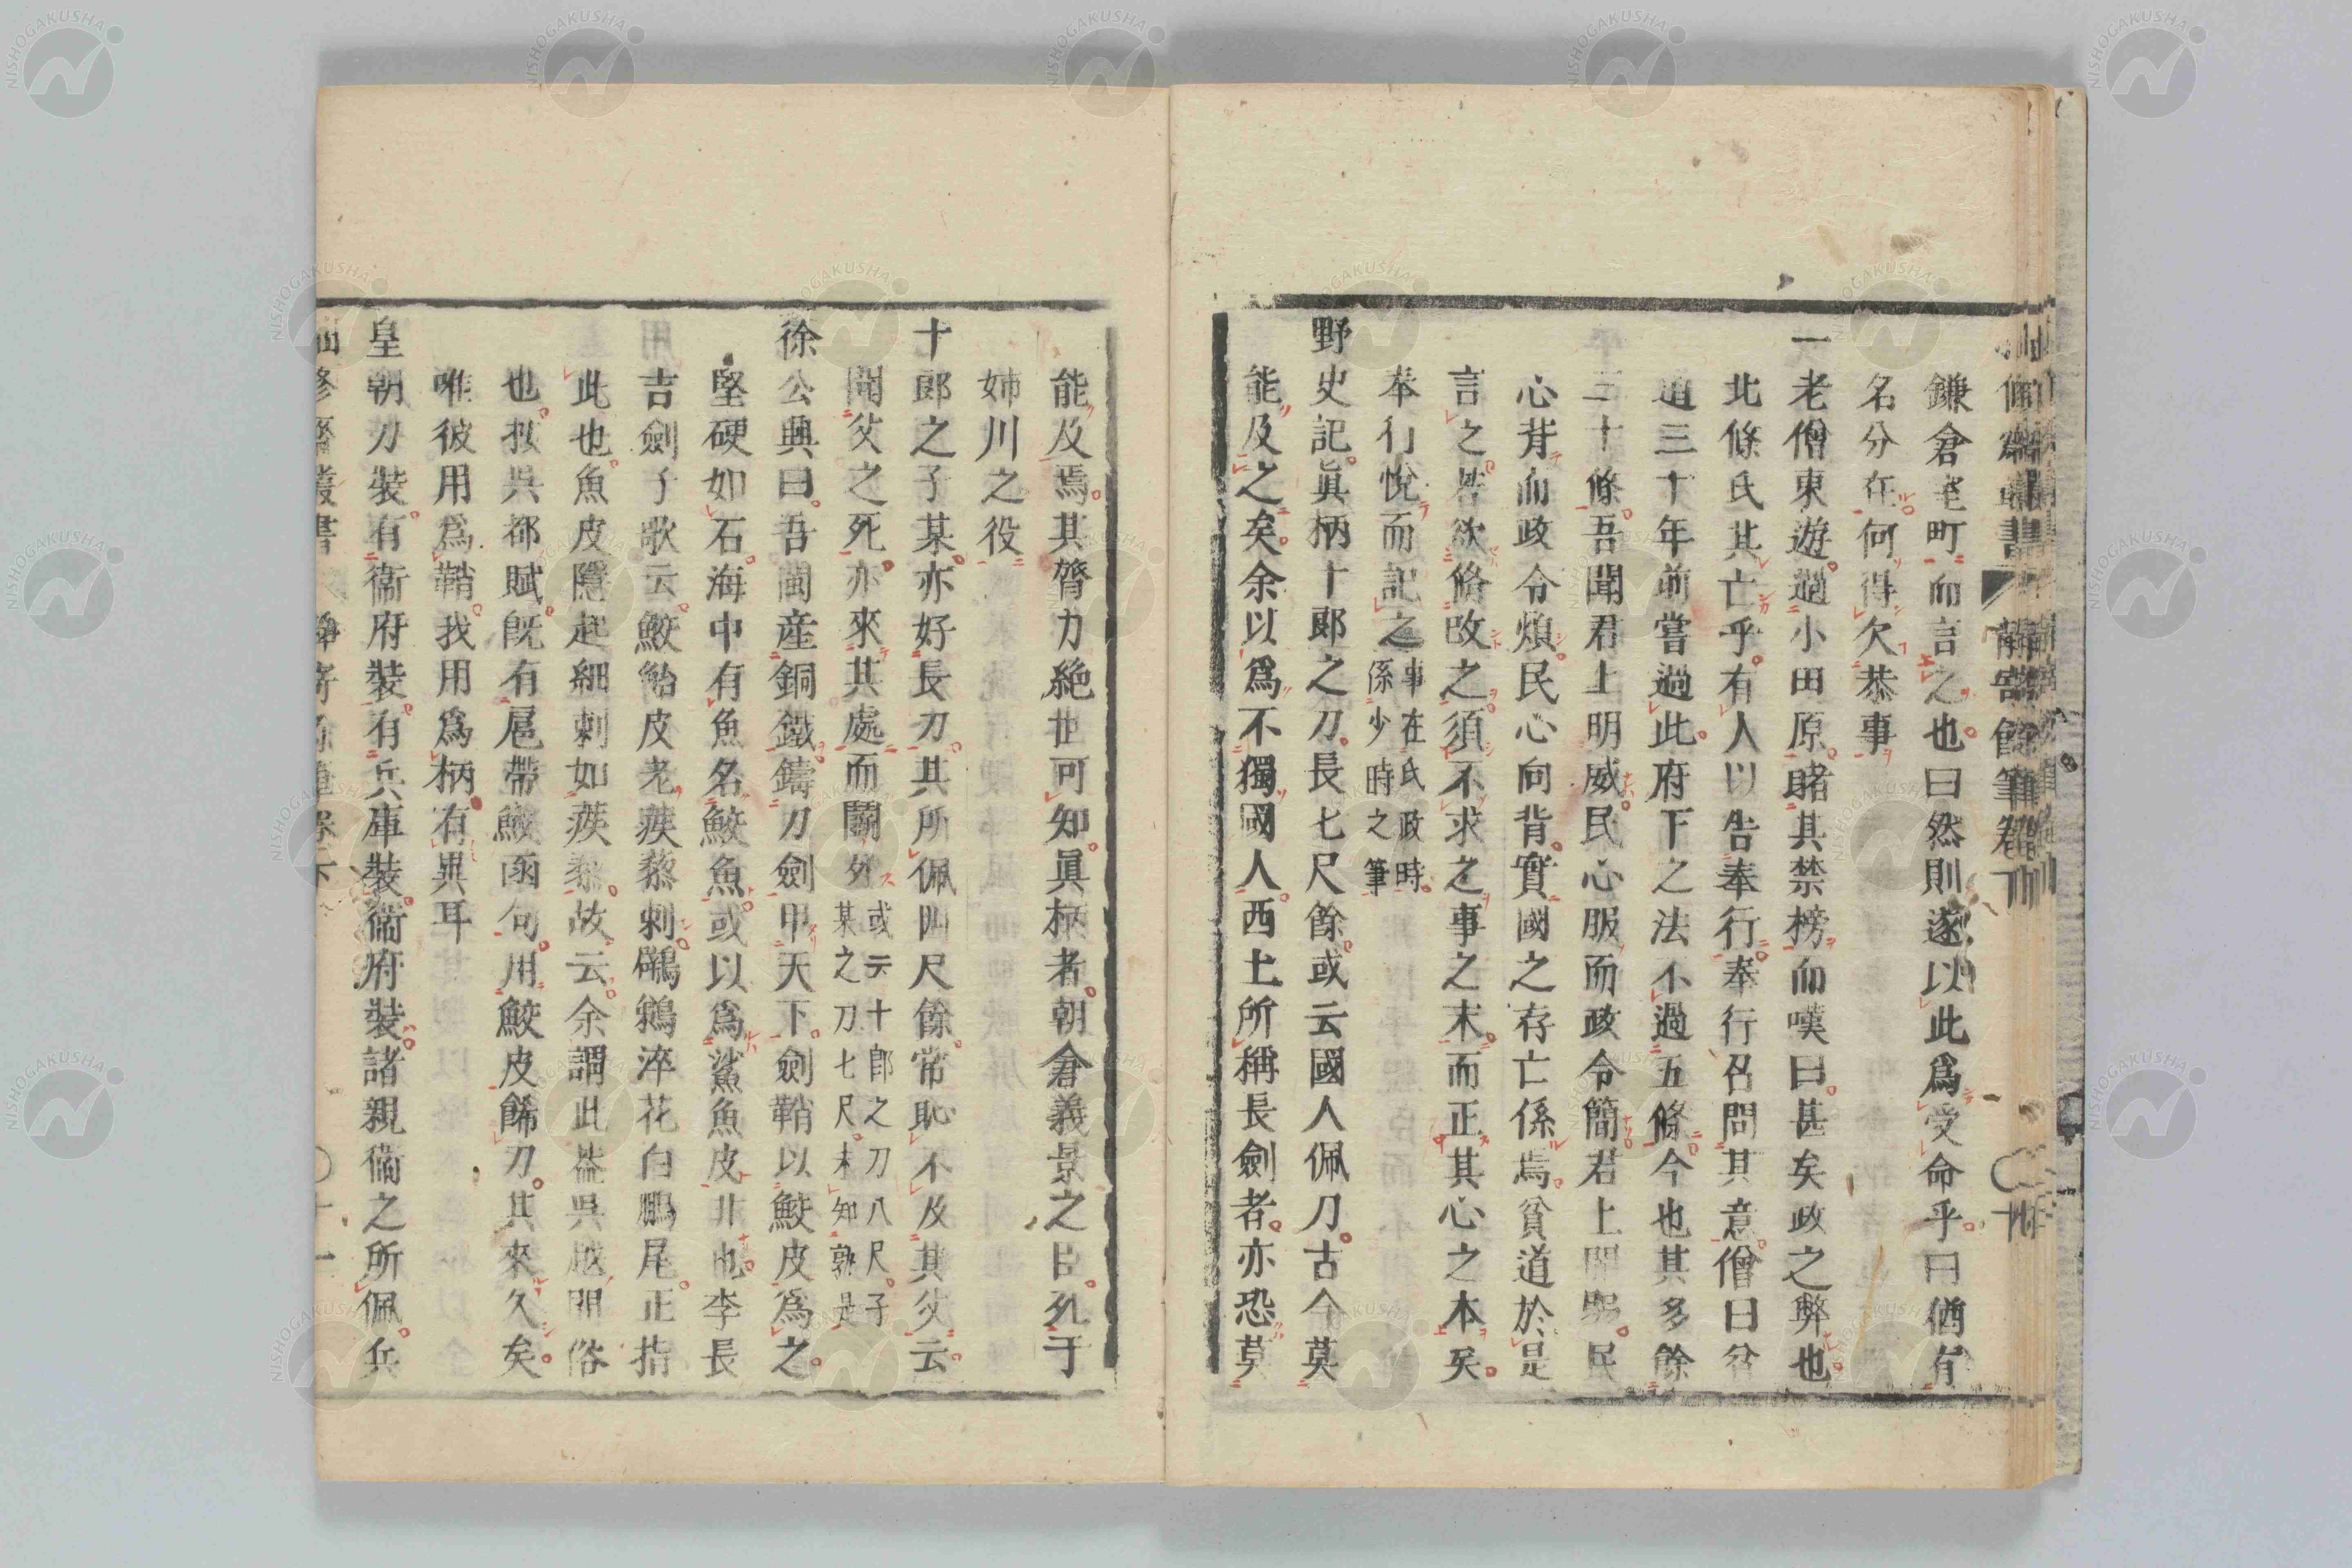 鎌倉室町而言之也曰然則遂以此爲受命乎曰猶有
名分在何得欠恭事
一老僧東遊過小田原睹其禁榜而嘆曰甚矣政之弊也
北條氏其亡乎有人以告奉行奉行召問其意僧曰貧
道三十年前嘗過此府下之法不過五條今也其多餘
二十條吾聞君上明威民心服而政令簡君上 民
心背而政令煩民心向背實國之存亡係焉貧道於是
言之若欲脩改之須不求之事之末而正其心之本矣
奉行悅而記之事在氏政時係少時之筆
野史記眞柄十郎之刀長七尺餘或云國人佩刀古今莫
能及之矣余以爲不獨國人西土所稱長劍者亦恐莫
能及焉其膂力絶世可知眞柄者朝倉義景之臣死于
姉川之役
十郎之子某亦好長刀其所佩四尺餘常恥不及其父云
聞父之死亦來其處而鬪死或云十郎之刀八尺子某之刀七尺未知孰是
徐公興曰吾閩産銅鐵鑄刀劍甲天下劍鞘以鮫皮爲之
堅硬如石海中有魚名鮫魚或以爲鯊魚皮非也李長
吉劍子歌云鮫鮐皮老蒺藜刺鸊鵜淬花白鷴尾正指
此也魚皮隱起細刺如蒺藜故云余謂此蓋呉越間俗
也按呉都賦既有扈帶鮫函句用鮫皮餙刀其來久矣
唯彼用爲鞘我用爲柄有異耳
皇朝刀裝有衞府裝有兵庫裝衞府裝諸親衞之所佩兵
NISHOGAKUSHA